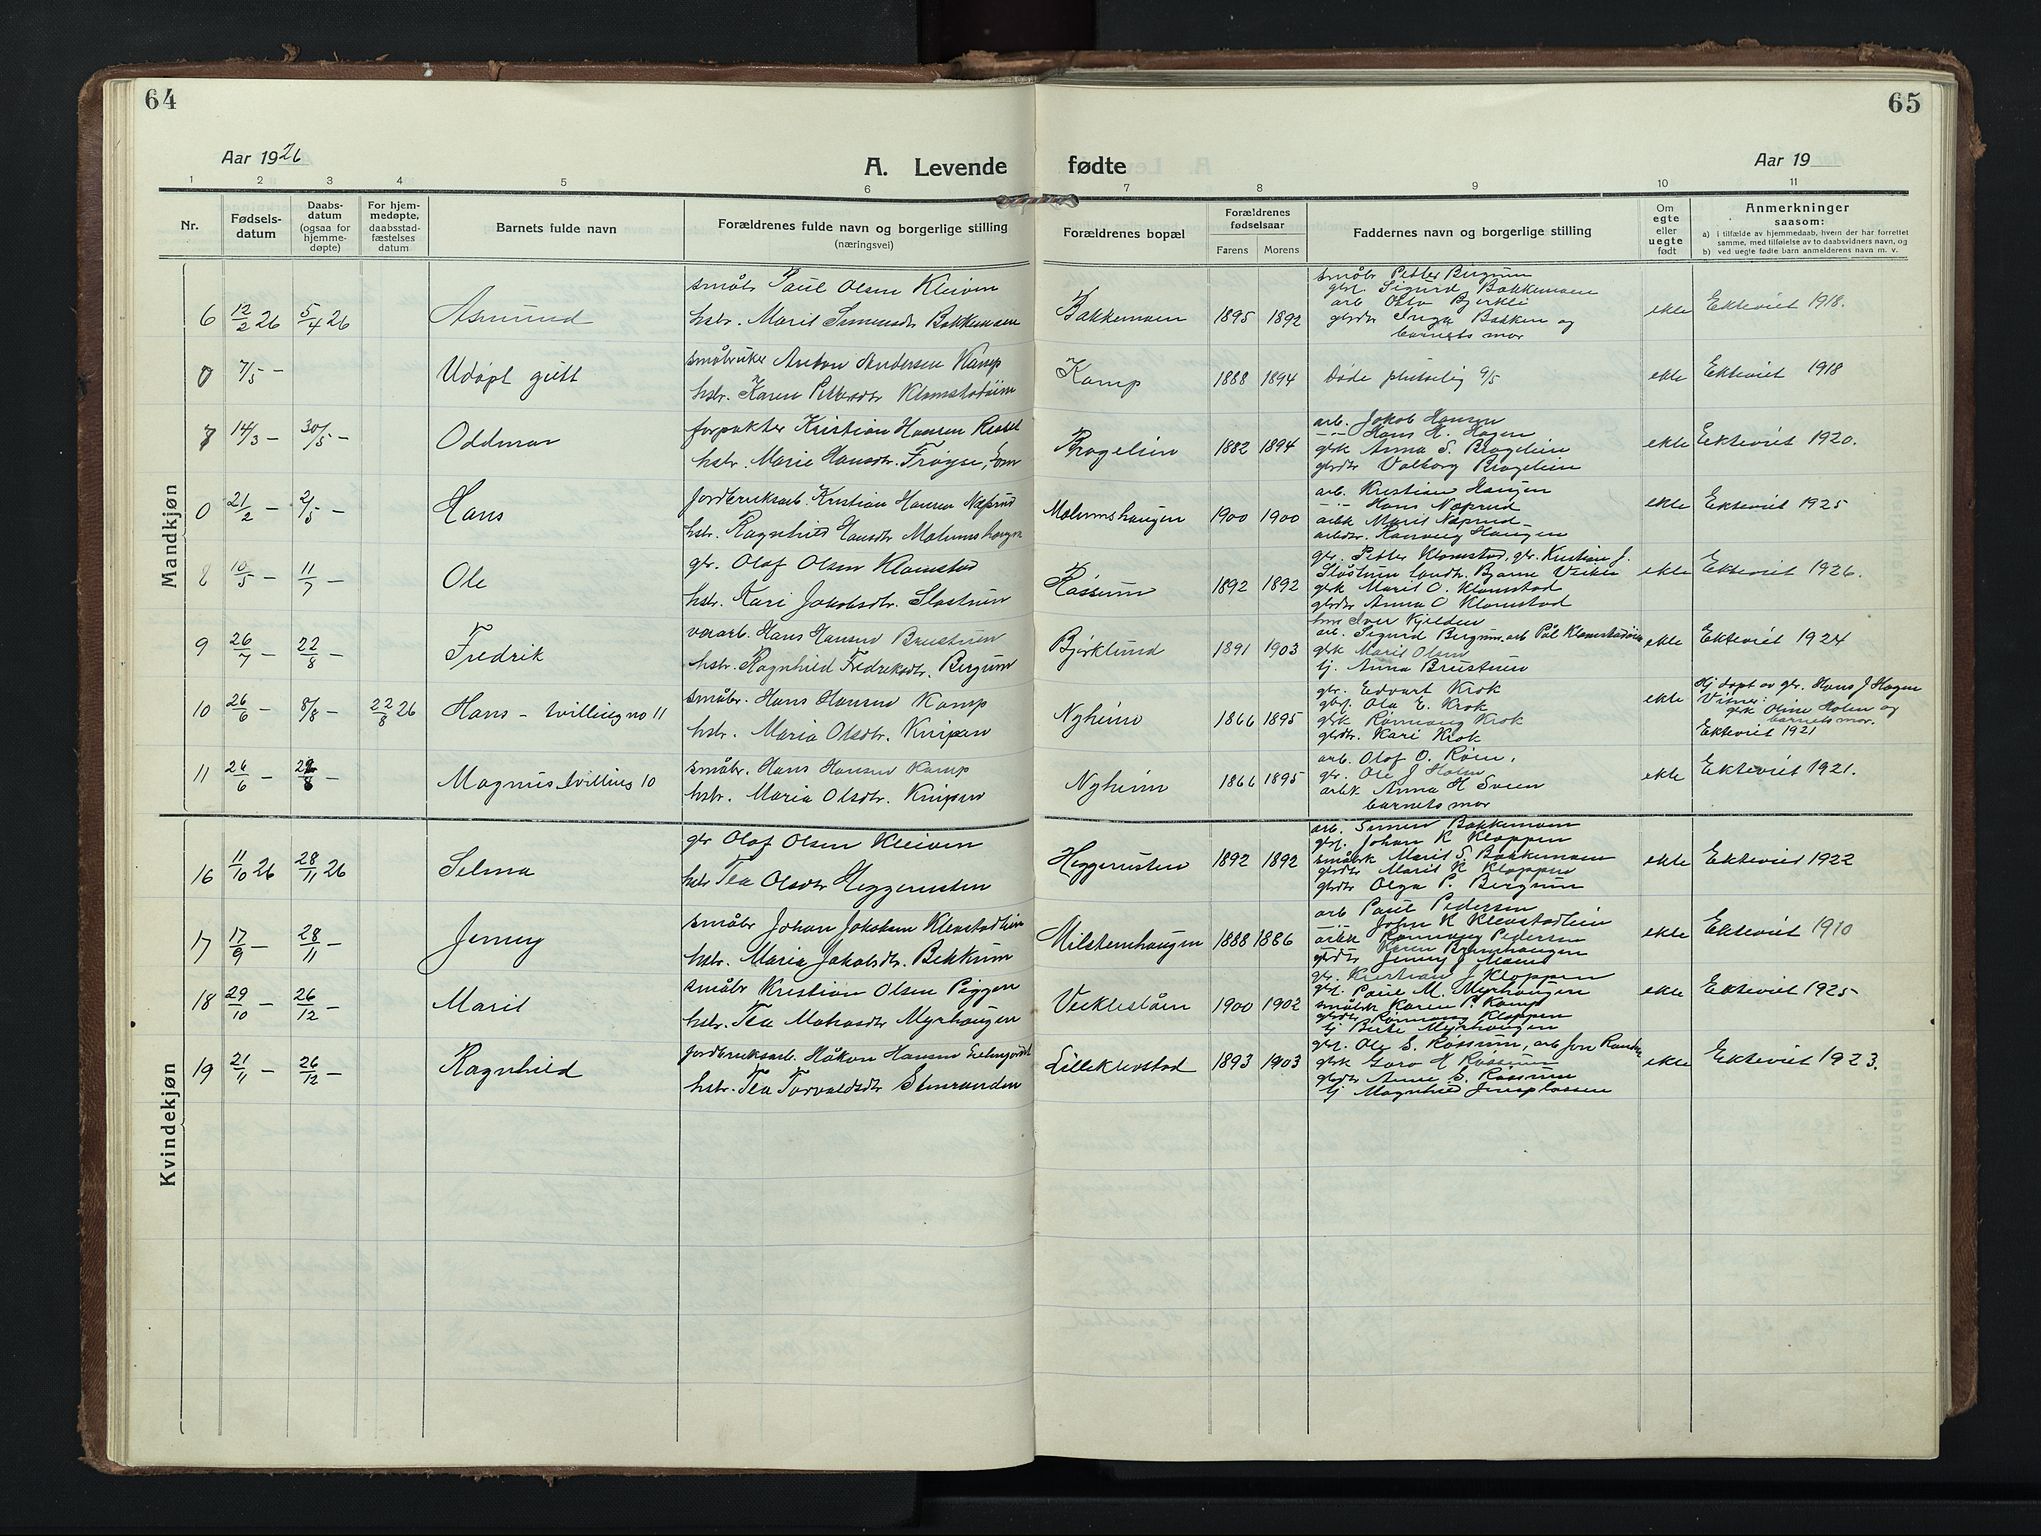 64
65
Aar 1926
A. Levende fødte
Aar 19
1 2 3 4 5 6 7 8 9 10 11
Nr.
Fødselsdatum
Daabsdatum (ogsaa for hjemmedøpte)
For hjemmedøpte, daabsstadfæstelses datum
Barnets fulde navn
Forældrenes fulde navn og borgerlige stilling (næringsvei)
Forældrenes bopæl
Forældrenes fødselsaar
Farens Morens
Faddernes navn og borgerlige stilling
Om egte eller uegte født
Anmerkninger
saasom:
a) i tilfælde av hjemmedaab, hvem der har forrettet samme, med tilføielse av to daabsvidners navn, og
b) ved uegte fødte barn anmelderens navn m. v.
Mandkjøn
6 12/2 26 5/4 26 Asmund
småbr Paul Olsen Kleiven
hstr. Marit Simensdt Bakkemoen
Bakkemoen 1895 1892
småbr Petter Bergum
gbrf. Sigurd Bakkemoen
arb Otto Bjerkli
gbrdtr Inga Bakken og
barnets mor
ekte Ekteviet 1918.
0 7/5 - Udøpt gutt
småbruker Anton Andersen Kamp
hstr. Karen Pettersdtr Klomstadøien
Kamp 1888 1894 Døde plutselig 9/5 ekte Ekteviet 1918
7 14/3 - 30/5 - Oddmar
forpakter Kristian Hansen
hstr. Marie Hansdtr. Frøyse, Lom
Bragelien 1882 1894
arb. Jakob Hansen
-"- Hans H. Hagen
gbrk Anna S. Bragelien
gbrdtr Valborg Bragelien
ekte Ekteviet 1920.
0 21/2 - 2/5 - Hans
jordbruksarb. Kristian Hansen Næprud
hstr. Ragnhild Hansdtr Molumshaugen
Molumshaugen 1900 1900
arb. Kristian Haugen
-"- Hans Næprud
arbk Marit Næprud
arbdtr. Rønnaug Haugen
ekte Ekteviet 1925
8 10/5 - 11/7 - Ole
gbr. Olaf Olsen Klomstad
hstr. Kari Jakobsdtr. Slåstuen
Røssum 1892 1892
gbr. Petter Klomstad, gbr. Kristian J.
Slåstuen landh. Bjarne Veikle
gbrk Marit O. Klomstad
gbrdtr Anna O Klomstad
ekte Ekteviet 1926.
9 26/7 - 22/8 - Fredrik
vararb. Hans Hansen Brustuen
hstr. Ragnhild Fredriksdtr. Bergum
Bjørklund 1891 1903
Iver Kjelden
arb. Sigurd Bergum, arb Pål Klomstadøien
gbrk Marit Olsen
tj. Anna Brustuen
ekte Ekteviet 1924
10 26/6 - 8/8 - 22/8 26 Hans - tvilling no 11
småbr. Hans Hansen Kamp
hstr. Maria Olsdtr. Knipen
Nyheim 1866 1895
gbr. Edvart Krok
gbrf. Ola E. Krok
gbrk Rønnaug Krok
gbrdtr. Kari Krok
ekte Hj døpt av gbr. Hans J Hagen
Vitner:
gbk Oline Holen og
barnets mor.
Ekteviet 1921
11 26/6 - 22/8 - Magnus, tvilling 10
småbr. Hans Hansen Kamp
hstr. Maria Olsdtr. Knipen
Nyheim 1866 1895
arb. Olaf O. Røin,
gbr. Ole J Holen
arbk Anna H Sveen
barnets mor
ekte Ekteviet 1921.
Kvindekjøn
16 11/10 26 28/11 26 Selma
gbr Olaf Olsen Kleiven
hstr Tea Olsdtr Heggerusten
Heggerusten 1892 1892
arb. Simen Bakkemoen
gbrf. Johan K Kloppen
småbrk Marit S. Bakkemoen
gbrdtr Marit K Kloppen
gbrdtr Olga P. Bergum
ekte Ekteviet 1922
17 17/9 - 28/11 - Jenny
småbr Johan Jakobsen Klevstadlien
hstr. Maria Jakobsdtr. Bekkum
Milstenhaugen 1888 1886
arb Paul Pedersen
-"- Johan K Klevstadlien
arbk Rønnaug Pedersen
gbrdtr Jenny J Moene
ekte Ekteviet 1910
18 29/10 - 26/12 - Marit
småbr Kristian Olsen Piggen
hstr. Tea Matiasdtr Myrhaugen
Veikleståen 1900 1902
gbr. Kristian J Kloppen
gbrf. Paul M. Myrhaugen
småbrk Karen P. Kamp
gbrdtr Rønnaug Kloppen
tj Berte Myrhaugen
ekte Ekteviet 1925
19 21/11 - 26/12 - Ragnhild
jordbruksarb. Håkon Hansen
hstr. Tea Torvaldsdtr Stenranden
Lilleklevstad 1893 1903
gbrf. Ole S. Røssum, arb Jon
gbrk Goro H Røssum
gbrdtr Anne S. Røssum
tj Magnhild Jensplassen
ekte Ekteviet 1923.